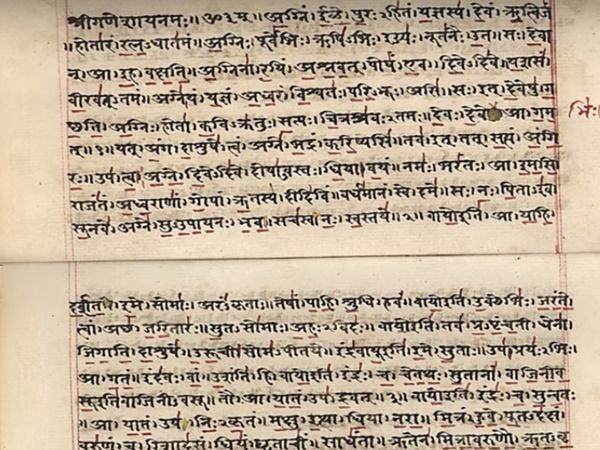 श्रीगणेशायनमः॥ॐ३म्॥अग्निं।ईळे।पुरःऽहितं।यज्ञस्य।देवं।ऋत्विजं
॥होतारं।रत्नऽधातमं॥अग्निः।पूर्वेभिः।ऋषिऽभिः।ईड्यः।नूतनैः।उत॥सः।देवा
न्।आ।इह।वक्षति॥अग्निना।रयिं।अश्नवत्।पोषं।एव।दिवेऽदिवे॥यशसं
वीरवत्ऽतमं॥अग्ने।यं।यज्ञं।अध्वरं।विश्वतः।परिऽभूः।असि॥सः।इत्।देवेषु।ग
च्छति॥अग्निः।होता।कविऽक्रतुः।सत्यः।चित्रश्रवःऽतमः॥देवः।देवे।आ।गम भिः।
त्॥१॥यत्।अंग।दाशुषे।त्वं।अग्ने।भद्रं।करिष्यसि॥तव।इत्।तत्।सत्यं।अंगि
रः॥उप।त्वा।अग्ने।दिवेऽदिवे।दोषाऽवस्तः।धिया।वयं॥नमः।भरंतः।आ।इमसि
राजंतं।अध्वराणां।गोपां।ऋतस्य।दीदिविं॥वर्धमानं।स्वे।दमे॥सः।नः।पिताऽइव
सूनवे।अग्ने।सुऽउपायनः।भव॥सचस्व।नः।स्वस्तये॥२॥वायोइति।आ।याहि।
दर्शत।इमे।सोमाः।अरंऽकृताः॥तेषां।पाहि।श्रुधि।हवं॥वायोइति।उक्थेभिः।जरंते
त्वां।अच्छ।जरितारः॥सुतऽसोमाः।अहःऽविदः॥वायोइति।तव।प्रऽपृंचती।धेना
जिगाति।दाशुषे॥उरूची।सोमऽपीतये॥इंद्रवायूइति।इमे।सुताः॥उप।प्रयःऽभिः।
आ।गतं॥इंदवः।वां।उशंति।हि॥वायोइति।इंद्रः।च।चेतथः।सुतानां।वाजिनीव
सूइतिवाजिनीऽवसू॥तौ।आ।यातं।उप।द्रवत्॥३॥वायोइति।इंद्रः।च।सुन्वतः
आ।यातं।उप।निःऽकृतं॥मक्षु।इत्था।धिया।नरा॥मित्रं।हुवे।पूतऽदक्षं
वरुणं।च।रिशादसं॥धियं।घृताचीं।साधंता॥ऋतेन।मित्रावरुणौ।ऋतऽवृ